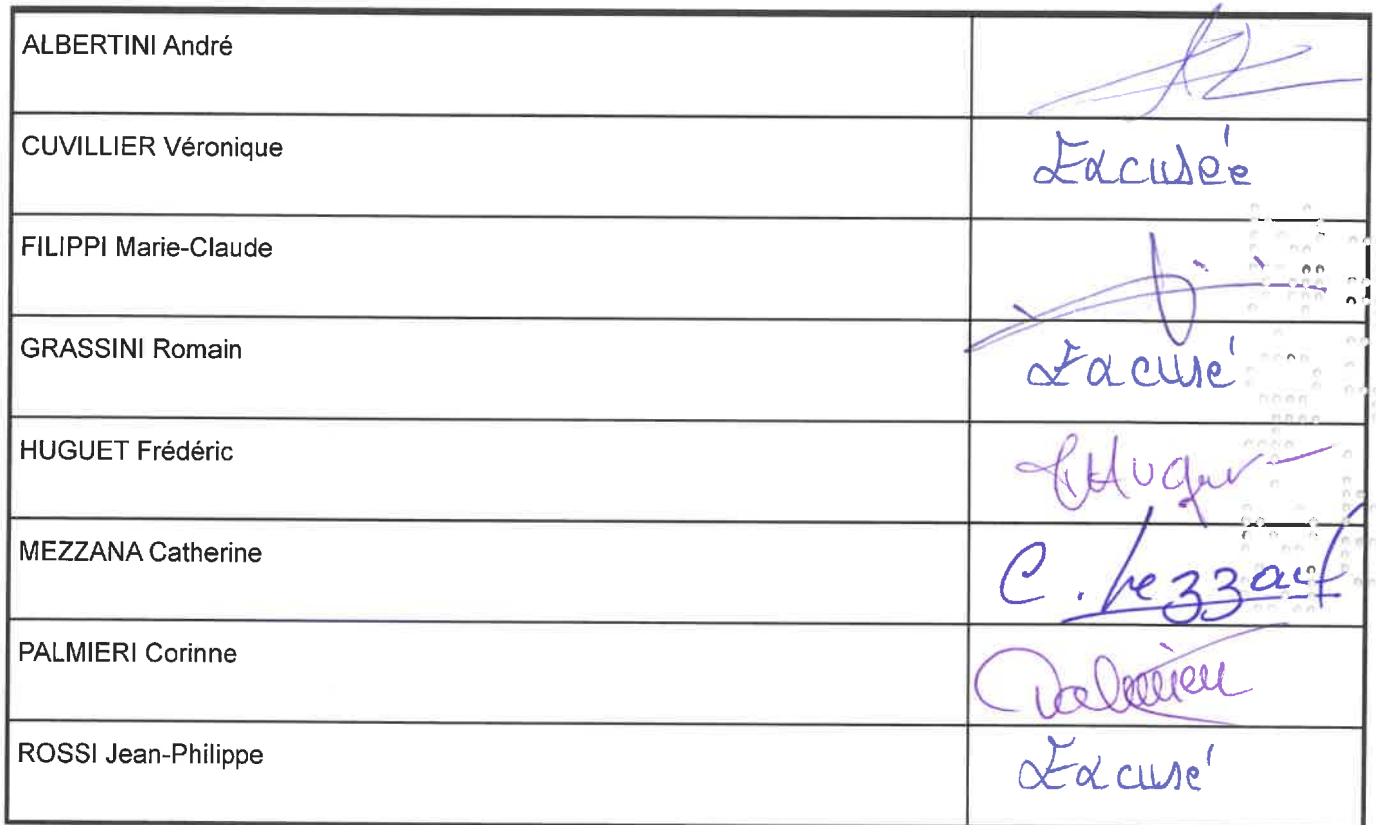 ALBERTINI André
CUVILLIER Véronique Excusée
FILIPPI Marie-Claude
GRASSINI Romain Excusé
HUGUET Frédéric
MEZZANA Catherine
PALMIERI Corinne
ROSSI Jean-Philippe Excusé